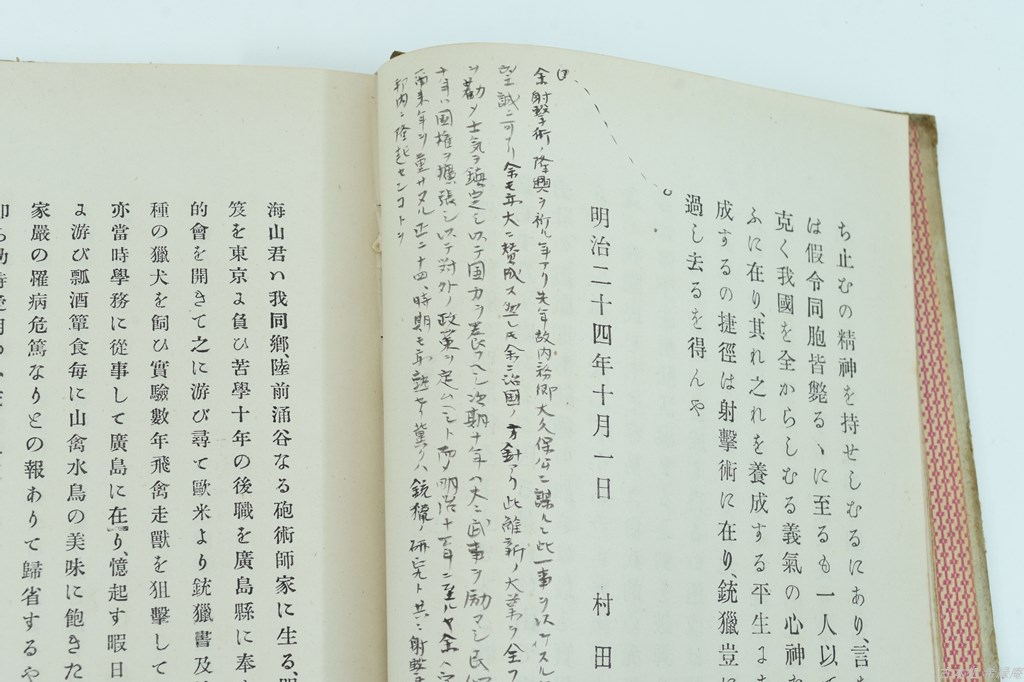 ち止むの精神を持せしむるにあり、言
は假令同胞皆斃るゝに至るも一人以て
克く我國を全からしむる義氣の心神
ふに在り、其れ之れを養成する平生よ
成するの捷徑は射擊術に在り、銃獵豈に
過し去るを得んや
明治二十四年十月一日 村田
余射撃術ノ隆興ヲ祈ル年アリ先年故内務卿大久保公ニ謀ルニ此一事ヲ以
誠ニ可ナリ余モ亦大ニ賛成ス然レ氏余ニ治国ノ方針アリ此維新ノ大業ヲ全フ
勧メ士気ヲ鎮定シ以テ国力ヲ養フヘシ次期十年ハ大ニ武事ヲ励マシ民
十年ハ国権ヲ擴張シ以テ対外ノ政策ヲ定ム 明治十
爾来年ヲ重サヌル正ニ十四、時期モ亦熟セリ冀クハ銃獵ノ研究ト共ニ射撃
邦内ニ隆起センコトヲ
海山君ハ我同鄕、陸前涌谷なる砲術師家に生る、
笈を東京よ負ひ苦學十年の後職を廣島縣に奉
的會を開きて之に游び尋て歐米より銃獵書及
種の獵犬を飼ひ實驗數年飛禽走獸を狙擊して
亦當時學務に從事して廣島に在り、憶起す暇日
よ游び瓢酒簞食每に山禽水鳥の美味に飽きた
家嚴の罹病危篤なりとの報ありて歸省するや